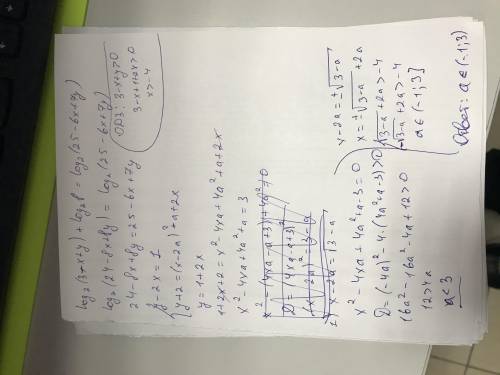 log₂(3-x+y) + log₂8 = log₂(25-6x+7y)
log₂(24-8x+8y) = log₂(25-6x+7y)
24-8x+8y = 25-6x+7y
y-2x = 1
y+2 = (x-2a)²+a+2x
y = 1+2x
1+2x+2 = x²-4xa+4a²+a+2x
x²-4xa+4a²+a = 3
x-2a = √3-a
x²-4xa+4a²+a-3 = 0
D = (-4a)²-4·(4a²+a-3) > 0
16a²-16a²-4a+12 > 0
12 > 4a
a < 3
ОДЗ: 3-x+y > 0
3-x+1+2x > 0
x > -4
x-2a = ±√3-a
x = ±√3-a +2a
√3-a +2a > -4
-√3-a +2a > -4
a ∈ (-1; 3]
Ответ: a ∈ (-1; 3)